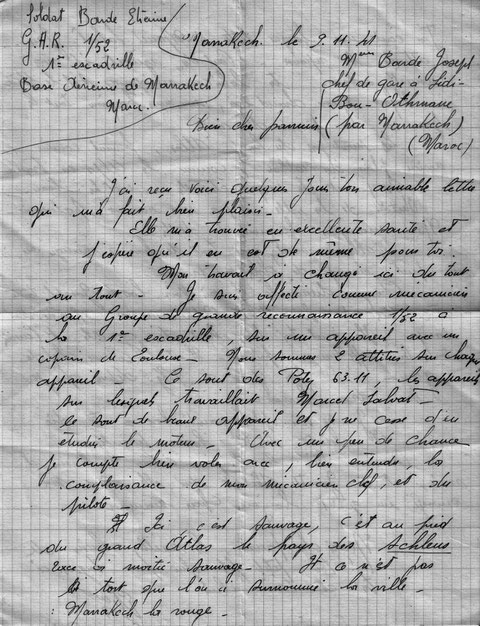 Soldat Barde Etienne
G.A.R. 1/52
1re escadrille
Base Aérienne de Marrakech
Maroc
Marrakech. le 9.11.41
Barde Joseph
Chef de gare à Sidi-
Bou-Othmane
(par Marrakech)
(Maroc)
Bien cher parrain
J'ai reçu voici quelques jours ton aimable lettre
qui m'a fait bien plaisir.
Elle m'a trouvé en excellente santé et
j'espère qu'il en est de même pour toi.
Mon travail a changé ici du tout
au tout - Je suis affecté comme mécanicien
au Groupe de grande reconnaissance 1/52 à
la 1re escadrille, sur un appareil avec un
copain de Toulouse - Nous sommes 2 sur chaque
appareil - Ce sont des Potez 63.11, les appareils
sur lesquels travaillait Marcel Salvat -
Ce sont de beaux appareils et je ne cesse d'en
étudier le moteur - Avec un peu de chance
je compte bien voler avec, bien entendu, la
complaisance de mon mécanicien chef, et du
pilote -
Ici, c'est sauvage, c'est au pied
du grand Atlas le pays des Schleus
moitié sauvage - Et ce n'est pas
à tort que l'on a surnommé la ville
: Marrakech la rouge -